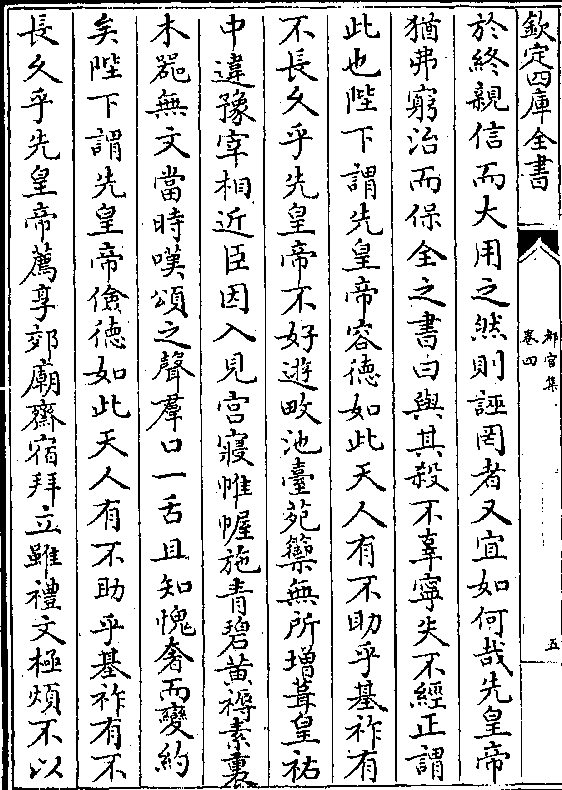 欽定四庫全書
都官集
卷四
五
於終親信而大用之然則誣罔者又宜如何哉先皇帝
猶弗窮治而保全之書曰與其殺不辜寧失不經正謂
此也陛下謂先皇帝容德如此天人有不助乎基祚有
不長久乎先皇帝不好遊畋池臺苑籞無所增葺皇祐
中違豫宰相近臣因入見宫寢帷幄施青碧黄褥素裹
木器無文當時嘆頌之聲羣口一舌且知愧奢而變約
矣陛下謂先皇帝儉德如此天人有不助乎基祚有不
長久乎先皇帝薦享郊廟齋宿拜立雖禮文極煩不以